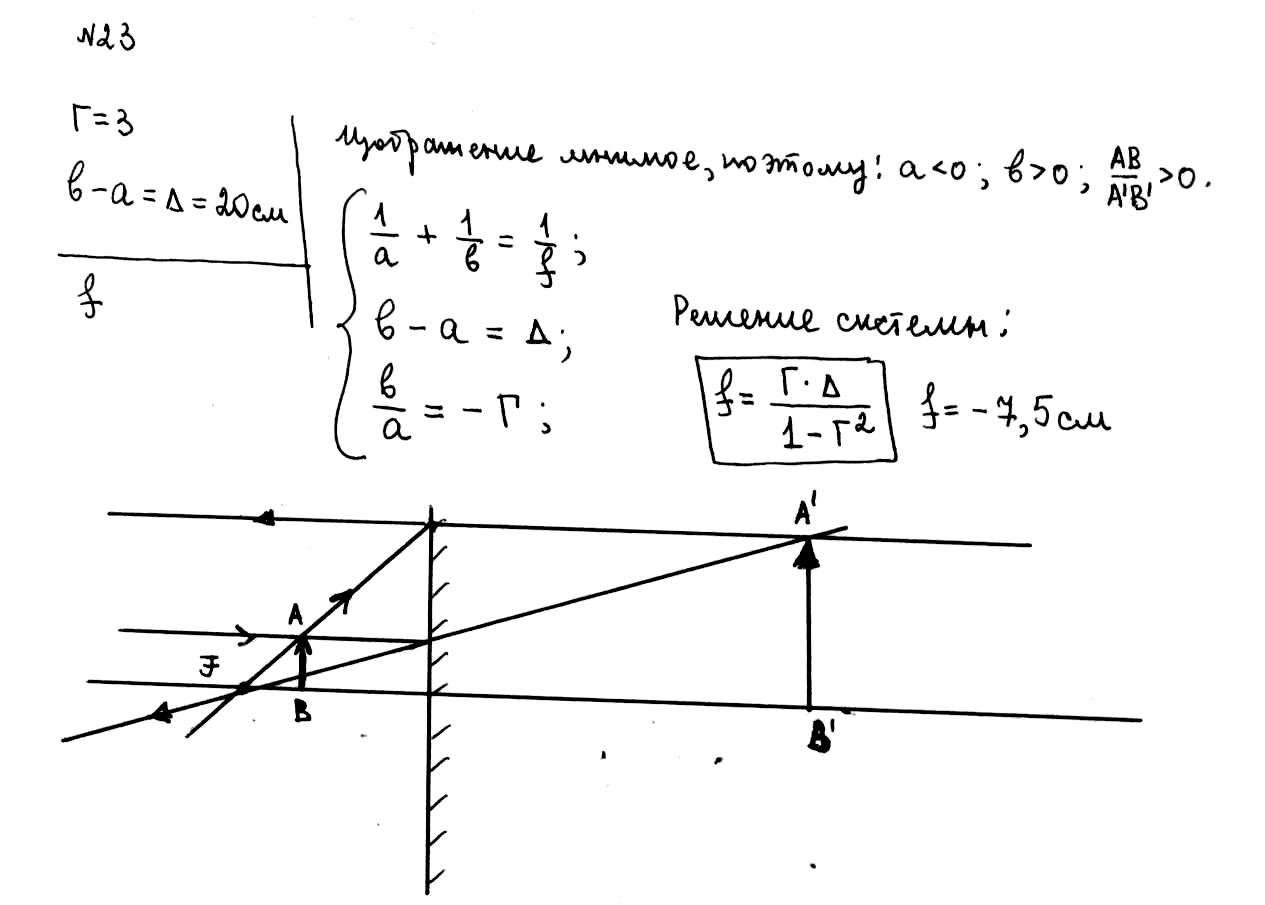 №23
Г=3
в-а=Δ=20см
f
изображение мнимое, поэтому: а<0; в>0; AB/A'B'>0.
1/а + 1/в = 1/f;
в-а = Δ;
в/а = -Г;
Решение системы:
f = Г·Δ/1-Г² f=-7,5см
A'
A
F
B
B'